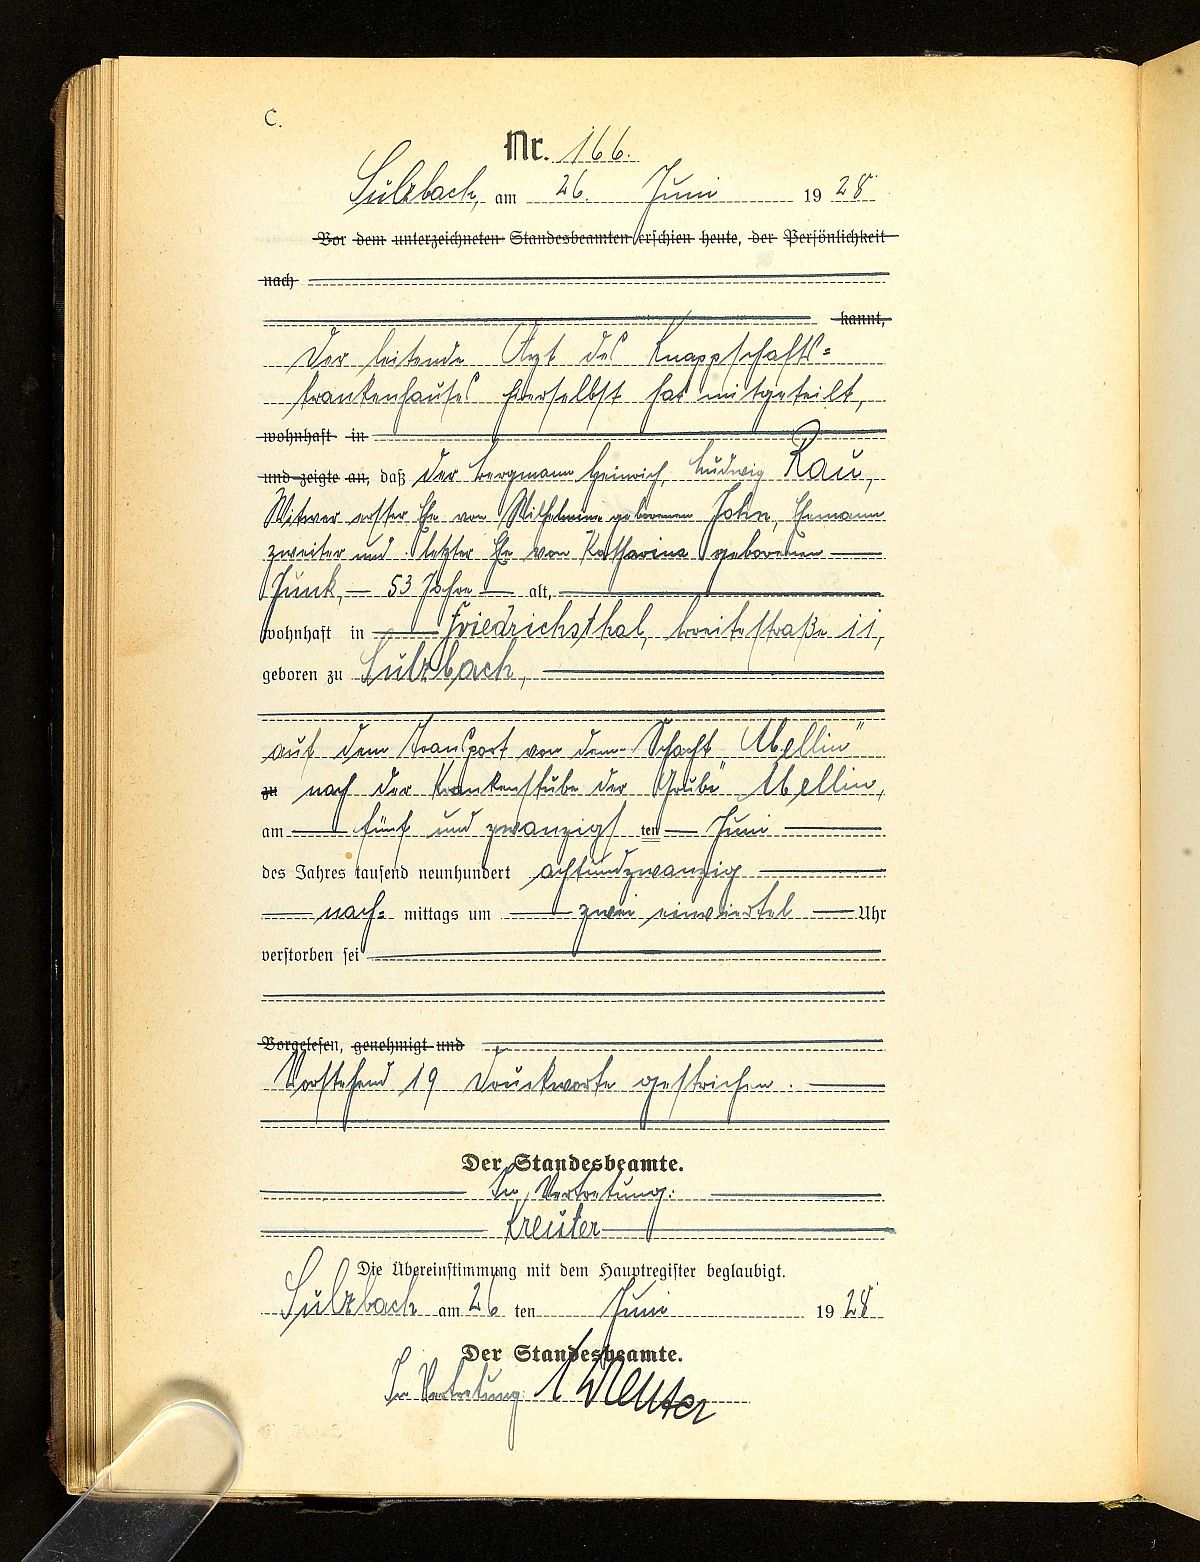 C.
Nr. 166.
Sulzbach, am 26. Juni 1928
Vor dem unterzeichneten Standesbeamten erschien heute, der Persönlichkeit
nach
kannt,
Der leitende Arzt des Knappschafts=
krankenhauses hierselbst hat mitgeteilt,
wohnhaft in
und zeigte an, daß der Bergmann Heinrich Ludwig Rau,
Witwer erster Ehe von Wilhelmine geborenen John, Ehemann
zweiter und letzter Ehe von Katharina geborenen
Junk, 53 Jahre alt,
wohnhaft in Friedrichsthal, Breitestraße 11,
geboren zu Sulzbach,
auf dem Transport von dem Schacht Mellin"
zu nach der Krankenstube der Grube" Mellin,
am fünf und zwanzigs ten Juni
des Jahres tausend neunhundert achtundzwanzig
nach= mittags um zwei einviertel Uhr
verstorben sei
Vorgelesen, genehmigt und
Vorstehend 19 Druckworte gestrichen.
Der Standesbeamte.
In Vertretung:
Kreuter
Die Übereinstimmung mit dem Hauptregister beglaubigt.
Sulzbach am 26 ten Juni 1928
Der Standesbeamte.
In Vertretung: Kreuter